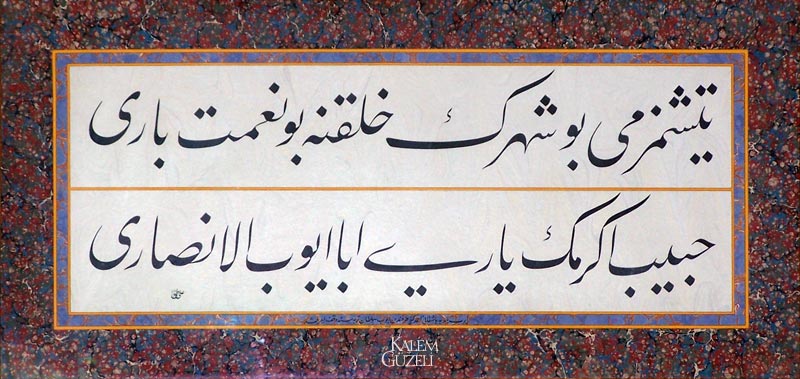 یتشمزمی بو شهرك خلقنه بو نعمت باری
حبیب اکرمك یاری ابا ایوب الانصاری
KALEM
GÜZELİ